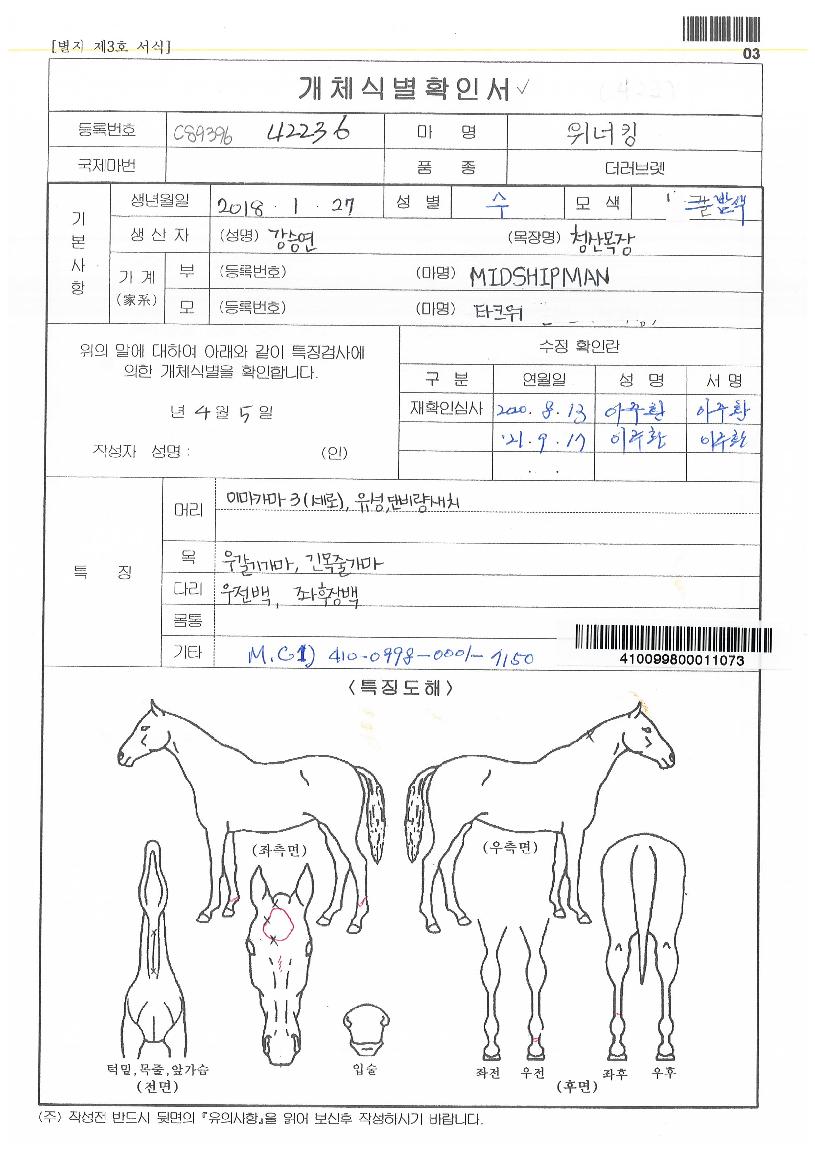 [별지 제3호 서식]
03
개체식별확인서 ✓
등록번호 C89396 42236 마 명 위너킹
국제마번 품 종 더러브렛
기본사항
생년월일 2018 . 1 . 27 성 별 수 모 색 밤색
생 산 자 (성명) 강승연 (목장명) 청산목장
가 계 (家系) 부 (등록번호) (마명) MIDSHIPMAN
모 (등록번호) (마명) 타크위
위의 말에 대하여 아래와 같이 특징검사에
의한 개체식별을 확인합니다.
년 4 월 5 일
작성자 성명 : (인)
수정 확인란
구 분 연월일 성 명 서 명
재확인심사 2020. 8. 13 이주환 이주환
'21. 9. 17 이주환 이주환
. .
특 징
머리 이마가마 3 (세로), 유성,
목 우갈기가마, 긴목줄가마
다리 우전백, 좌후장백
몸통
기타 M.C1) 410-0998-0001-1150
410099800011073
<특징도해>
(좌측면)
(우측면)
턱밑,목줄,앞가슴
(전면)
입술
좌전 우전 좌후 우후
(후면)
(주) 작성전 반드시 뒷면의 『유의사항』을 읽어 보신후 작성하시기 바랍니다.